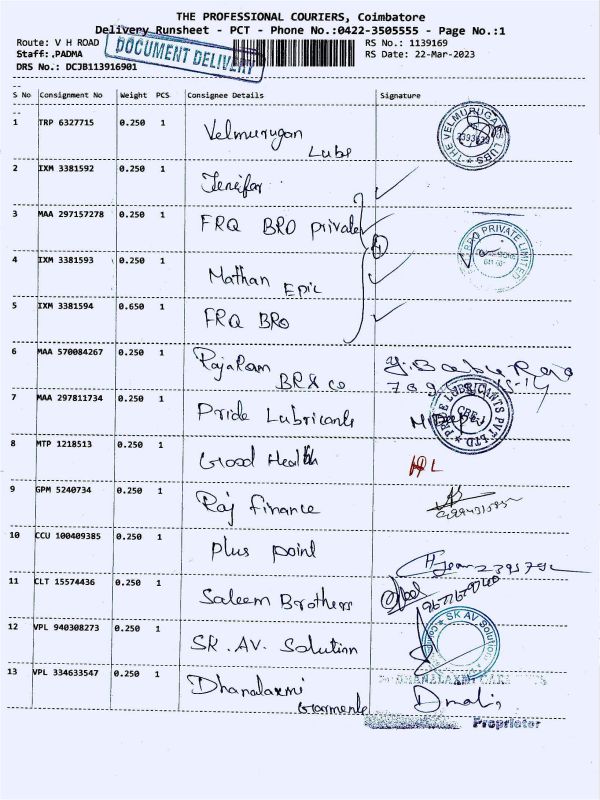 THE PROFESSIONAL COURIERS, Coimbatore
Delivery Runsheet - PCT - Phone No.:0422-3505555 - Page No.:1
Route: V H ROAD
RS No.: 1139169
Staff:.PADMA
DOCUMENT DELIVERY
RS Date: 22-Mar-2023
DRS No.: DCJB113916901
S No Consignment No Weight PCS Consignee Details Signature
1 TRP 6327715 0.250 1 Velmurugan
Lube
THE VELMURUGAN LUBS
2 IXM 3381592 0.250 1 Jenifar
3 MAA 297157278 0.250 1 FRQ BRO private
BRO PRIVATE LIMITED
4 IXM 3381593 0.250 1 Mathan Epic
5 IXM 3381594 0.650 1 FRQ BRO
6 MAA 570084267 0.250 1 RajaRam
BR & co
7 MAA 297811734 0.250 1 Pride Lubricants
PRIDE LUBRICANTS PVT LTD
CBE
8 MTP 1218513 0.250 1 Good Health
9 GPM 5240734 0.250 1 Raj Finance
10 CCU 100409385 0.250 1 Plus point
11 CLT 15574436 0.250 1 Saleem Brothers
12 VPL 940308273 0.250 1 SK. AV. Solution
SK AV Solution
13 VPL 334633547 0.250 1 Dhanalaxmi
Garments
Proprietor